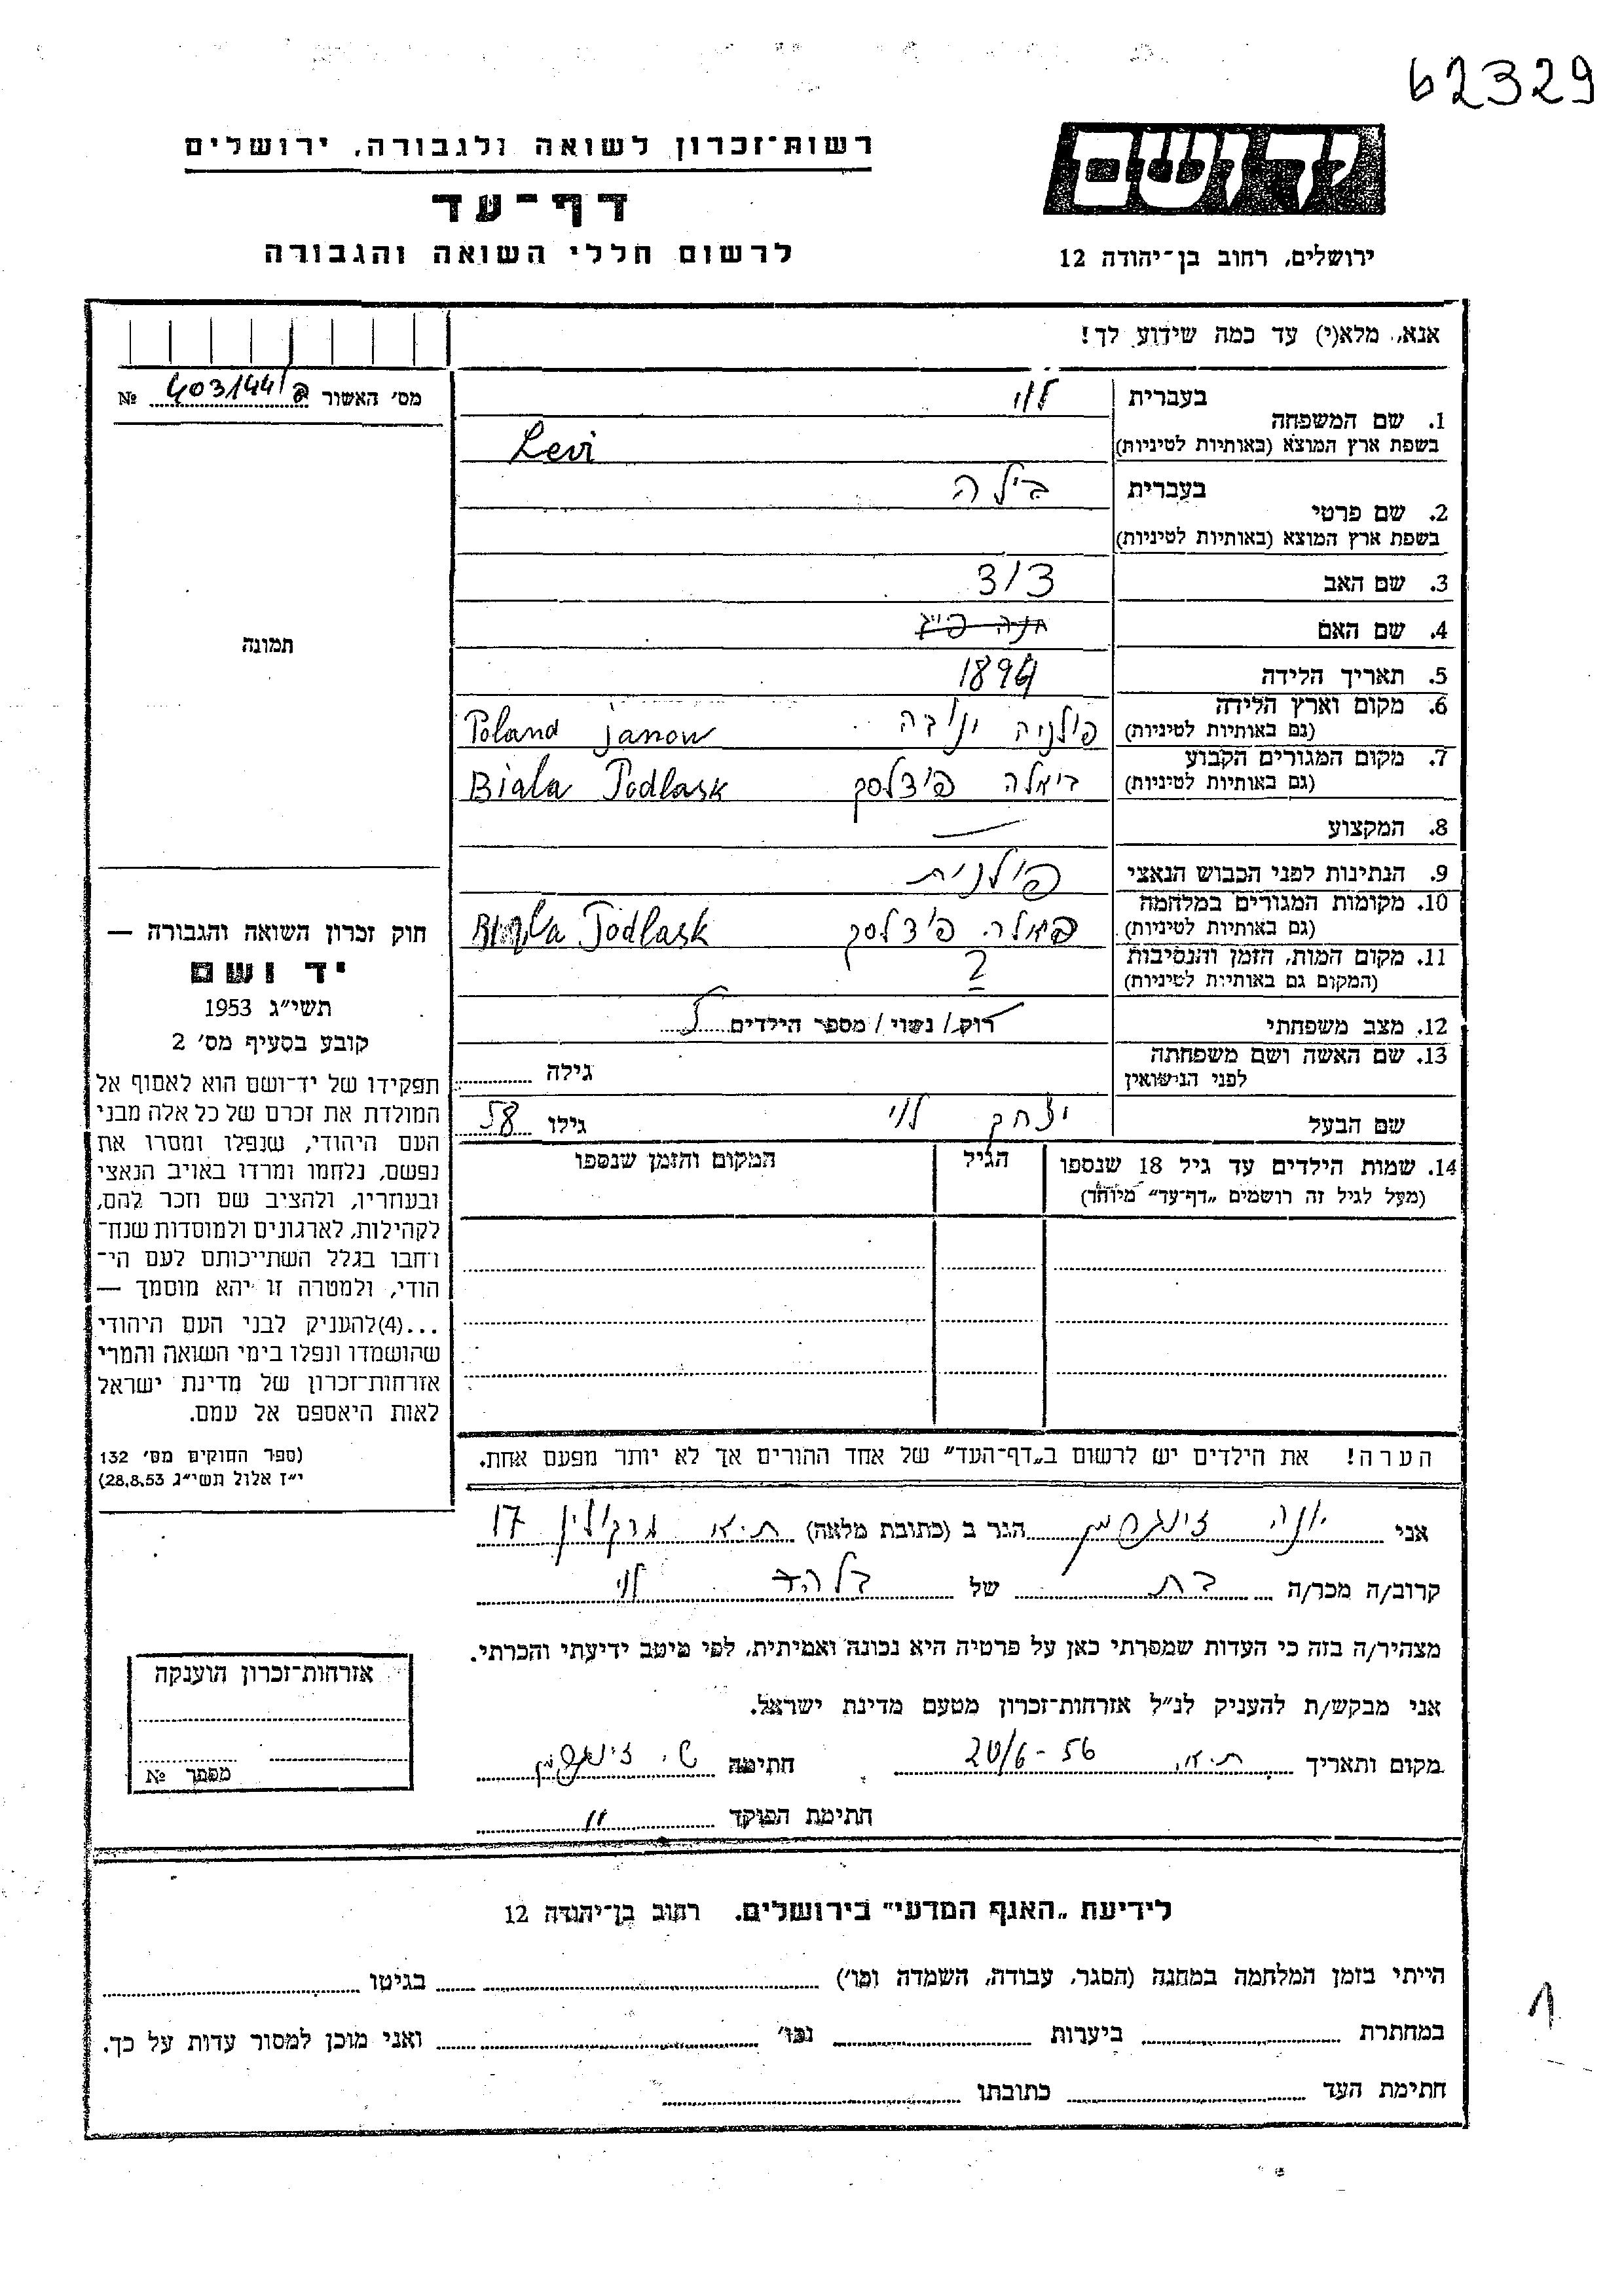 62329
יד ושם
ירושלים, רחוב בן־יהודה 12
רשות־זכרון לשואה ולגבורה, ירושלים
דף־עד
לרשום חללי השואה והגבורה
אנא, מלא(י) עד כמה שידוע לך!
מס' האשור 403144 №
1. שם המשפחה
בעברית לוי
בשפת ארץ המוצא (באותיות לטיניות) Levi
2. שם פרטי
בעברית בילה
בשפת ארץ המוצא (באותיות לטיניות)
3. שם האב דוד
4. שם האם
5. תאריך הלידה 1894
6. מקום וארץ הלידה
(גם באותיות לטיניות) פולניה Poland Janow
7. מקום המגורים הקבוע
(גם באותיות לטיניות) ביאלה פודלסק Biala Podlask
8. המקצוע —
9. הנתינות לפני הכבוש הנאצי פולנית
10. מקומות המגורים במלחמה
(גם באותיות לטיניות) ביאלה פודלסק Biala Podlask
11. מקום המות, הזמן והנסיבות
(המקום גם באותיות לטיניות) ?
12. מצב משפחתי רוק/ נשוי/ מספר הילדים 5
13. שם האשה ושם משפחתה
לפני הנישואין גילה
שם הבעל יצחק לוי גילו 58
14. שמות הילדים עד גיל 18 שנספו
(מעל לגיל זה רושמים „דף־עד" מיוחד)
הגיל
המקום והזמן שנספו
הערה! את הילדים יש לרשום ב„דף־העד" של אחד ההורים אך לא יותר מפעם אחת.
תמונה
חוק זכרון השואה והגבורה —
יד ושם
תשי"ג 1953
קובע בסעיף מס' 2
תפקידו של יד־ושם הוא לאסוף אל
המולדת את זכרם של כל אלה מבני
העם היהודי, שנפלו ומסרו את
נפשם, נלחמו ומרדו באויב הנאצי
ובעוזריו, ולהציב שם וזכר להם,
לקהילות, לארגונים ולמוסדות שנח־
רבו בגלל השתייכותם לעם הי־
הודי, ולמטרה זו יהא מוסמך —
...(4)להעניק לבני העם היהודי
שהושמדו ונפלו בימי השואה והמרי
אזרחות־זכרון של מדינת ישראל
לאות היאספם אל עמם.
(ספר החוקים מס' 132
י"ז אלול תשי"ג 28.8.53)
אני יונה הגר ב (כתובת מלאה) ת.א. 17
קרוב/ה מכר/ה בת של לוי
מצהיר/ה בזה כי העדות שמסרתי כאן על פרטיה היא נכונה ואמיתית, לפי מיטב ידיעתי והכרתי.
אני מבקש/ת להעניק לנ"ל אזרחות־זכרון מטעם מדינת ישראל.
מקום ותאריך ת.א. 20/6-56 חתימה
חתימת הפוקד
אזרחות־זכרון הוענקה
מספר №
לידיעת „האגף המדעי" בירושלים. רחוב בן־יהודה 12
הייתי בזמן המלחמה במחנה (הסגר, עבודה, השמדה וכו') בגיטו
במחתרת ביערות וכו' ואני מוכן למסור עדות על כך.
חתימת העד כתובתו
1